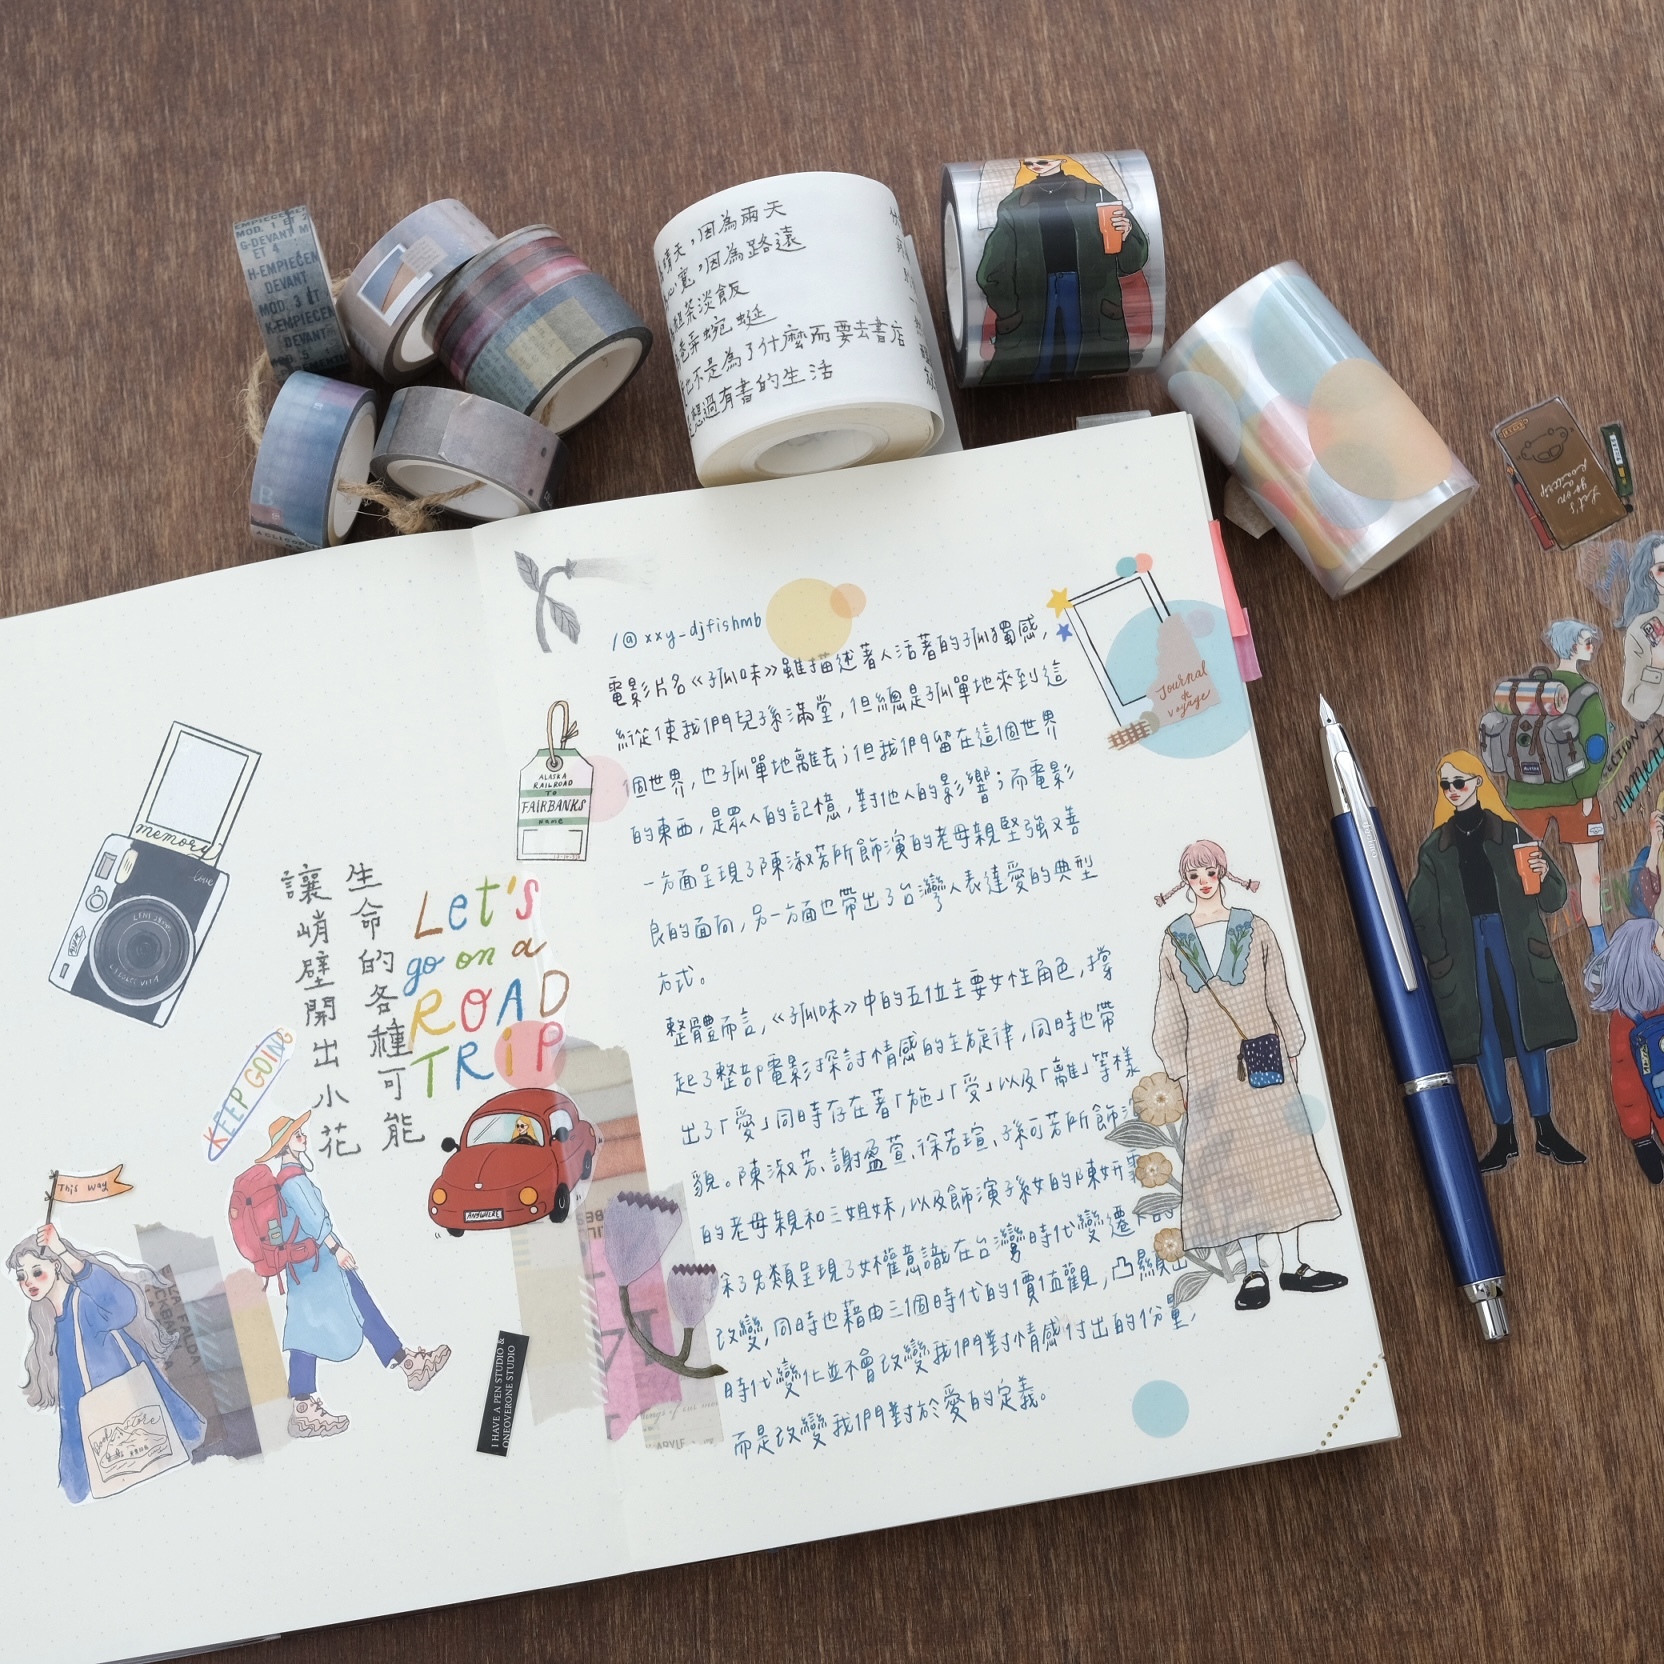 EMPIECEMEN
MOD. 1 ET 2
G-DEVANT M
ET 4
H-EMPIECEN
DEVANT
MOD. 3 ET
K-EMPIECEM
DEVANT
晴天,因為雨天
心寬,因為路遠
粗茶淡飯
弄蜿蜒
也不是為了什麼而要去書店
想過有書的生活
Let's
go on
a
ROADTRIP
memory
love
生命的各種可能
讓峭壁開出小花
Let's
go on a
ROAD
TRIP
KEEP GOING
This way
Book store
ANYWHERE
I HAVE A PEN STUDIO &
ONEOVERONE STUDIO
ALASKA
RAILROAD
TO
FAIRBANKS
NAME
/@xxy_djfishmb
電影片名《孤味》雖描述著人活著的孤獨感,
縱使我們兒孫滿堂,但總是孤單地來到這
個世界,也孤單地離去;但我們留在這個世界
的東西,是眾人的記憶,對他人的影響;而電影
一方面呈現了陳淑芳所飾演的老母親堅強又善
良的面向,另一方面也帶出了台灣人表達愛的典型
方式。
整體而言,《孤味》中的五位主要女性角色,撐
起了整部電影探討情感的主旋律,同時也帶
出了「愛」同時存在著「施」「受」以及「離」等樣
貌。陳淑芳、謝盈萱、徐若瑄、孫可芳所飾演
的老母親和三姐妹,以及飾演孫女的陳妍霏
除了另類呈現了女權意識在台灣時代變遷下的
改變,同時也藉由三個時代的價值觀,凸顯出
時代變化並不會改變我們對情感付出的份量,
而是改變我們對於愛的定義。
Journal
de
voyage